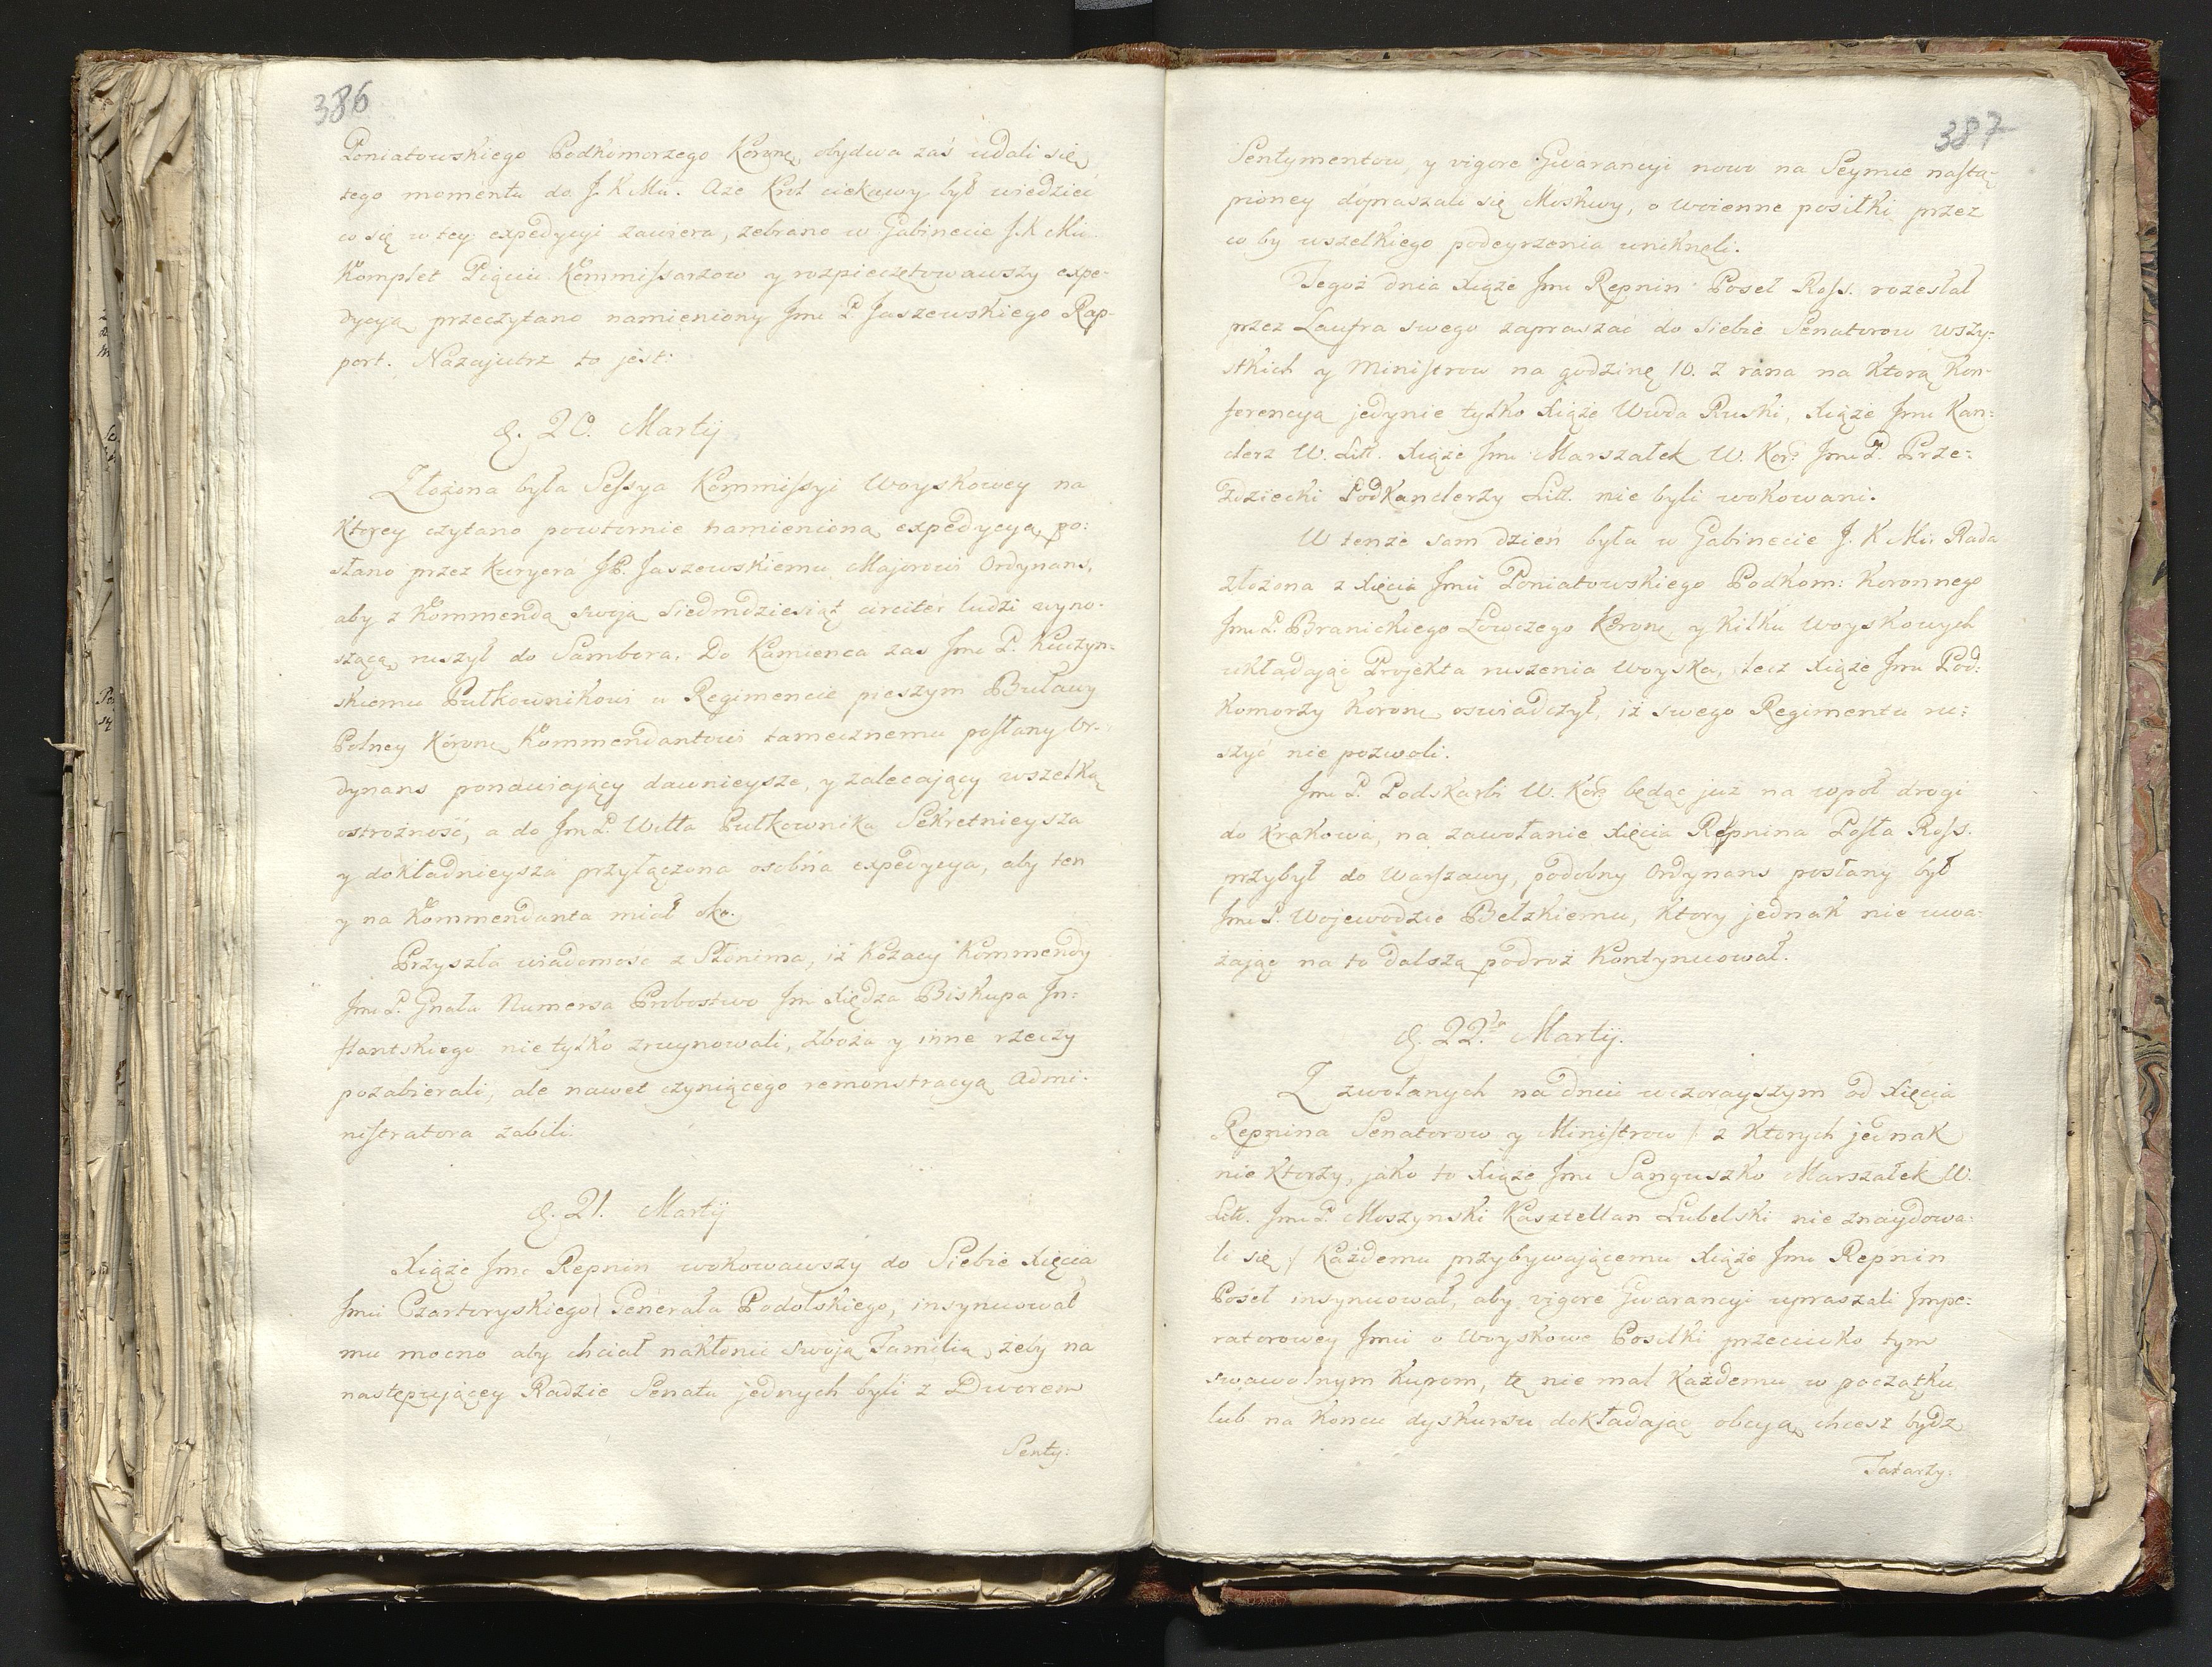 386
Poniatowskiego Podkomorzego Koronę, obydwa zaś udali się
tego momentu do J. K Mci. Aże Krol ciekawy był wiedzieć
co się w tey expedycyi zawiera, zebrano w Gabinecie J. K Mci
Komplet Pięciu Kommissarzow y rozpieczętowawszy expe-
dycyą przeczytano namieniony Jmc P Jaszewskiego Rap-
port. Nazajutrz to jest:
d. 20. Martij
Złożona była Sessya Kommissyi Woyskowey na
ktorey czytano powtornie namienioną expedycyą, po:
słano przez Kuryera JP. Jaszewskiemu Majorowi Ordynans,
aby z Kommendą swoją siedmdziesiąt circiter ludzi wyno-
szącą ruszył do Sambora. Do Kamienca zas Jmc P. Kuczyn-
skiemu Pułkownikowi w Regimencie pieszym Buławy
Polney Koronę Kommendantowi tamecznemu posłany Or-
dynans ponawiający dawnieysze, y zalecający wszelką
ostrożność, a do Jmc P. Witta Pułkownika Sekretnieysza
y dokładnieysza przyłączona osobna expedycya, aby ten
y na Kommendanta miał oko.
Przyszła wiadomość z Słonima, iż Kozacy Kommendy
Jmc P. Gnała Numersa Probostwo Jmc Xiędza Biskupa In:
flantskiego nie tylko zruynowali, zboża y inne rzeczy
pozabierali, ale nawet czyniącego remonstracyą Admi-
nistratora zabili.
d. 21. Martij
Xiąże Jmc Repnin wokowawszy do Siebie Xięcia
Jmci Czartoryskiego Generała Podolskiego, insynuował
mu mocno aby chciał nakłonić swoją Familią, żeby na
następującey Radzie Senatu jednych byli z Dworem
Senty:
387
Sentymentow, y vigore Gwarancyi nowo na Seymie nastą-
pioney dopraszali się Moskwy, o woienne posiłki przez
co by wszelkiego podeyrzenia uniknęli.
Tegoż dnia Xiąże Jmc Repnin Poseł Ross. rozesłał
przez Laufra swego zapraszać do Siebie Senatorow wszy-
stkich y Ministrow na godzinę 10. z rana na ktorą Kon-
ferencyą jedynie tylko Xiąże Wwda Ruski, Xiąże Jmc Kan:
clerz W. Litt. Xiąże Jmc Marszałek W. Kor? Jmc P. Prze:
zdziecki Podkanclerzy Litt. nie byli wokowani.
W tenże sam dzień była w Gabinecie J. K Mci Rada
złożona z Xięcia Jmci Poniatowskiego Podkom: Koronnego
Jmc P. Branickiego Łowczego Koronę y kilku Woyskowych
układając Projekta ruszenia Woyska, lecz Xiąże Jmc Pod:
komorzy Koronę oswiadczył, iż swego Regimentu ru:
szyć nie pozwoli.
Jmc P. Podskarbi W. Kor? będąc już na wpoł drogi
do Krakowa, na zawołanie Xięcia Repnina Posła Ross.
przybył do Warszawy, podobny Ordynans posłany był
Jmc P. Wojewodzie Bełzkiemu, ktory jednak nie uwa-
żając na to dalszą podroż kontynuował.
d. 22. Martij.
Z zwołanych na dniu wczorayszym od Xięcia
Repnina Senatorow y Ministrow /: z ktorych jednak
nie ktorzy, jako to Xiąże Jmc Sanguszko Marszałek W.
Litt. Jmc P. Moszynski Kasztellan Lubelski nie znaydowa:
li się :/ każdemu przybywającemu Xiąże Jmc Repnin
Poseł insynuował, aby vigore Gwarancyi upraszali Impe:
ratorowey Jmci o Woyskowe Posiłki przeciwko tym
swawolnym kupom, tę nie mal każdemu w początku
lub na końcu dyskursu dokładając obcyą, chcesz bydz
Tatarzy: